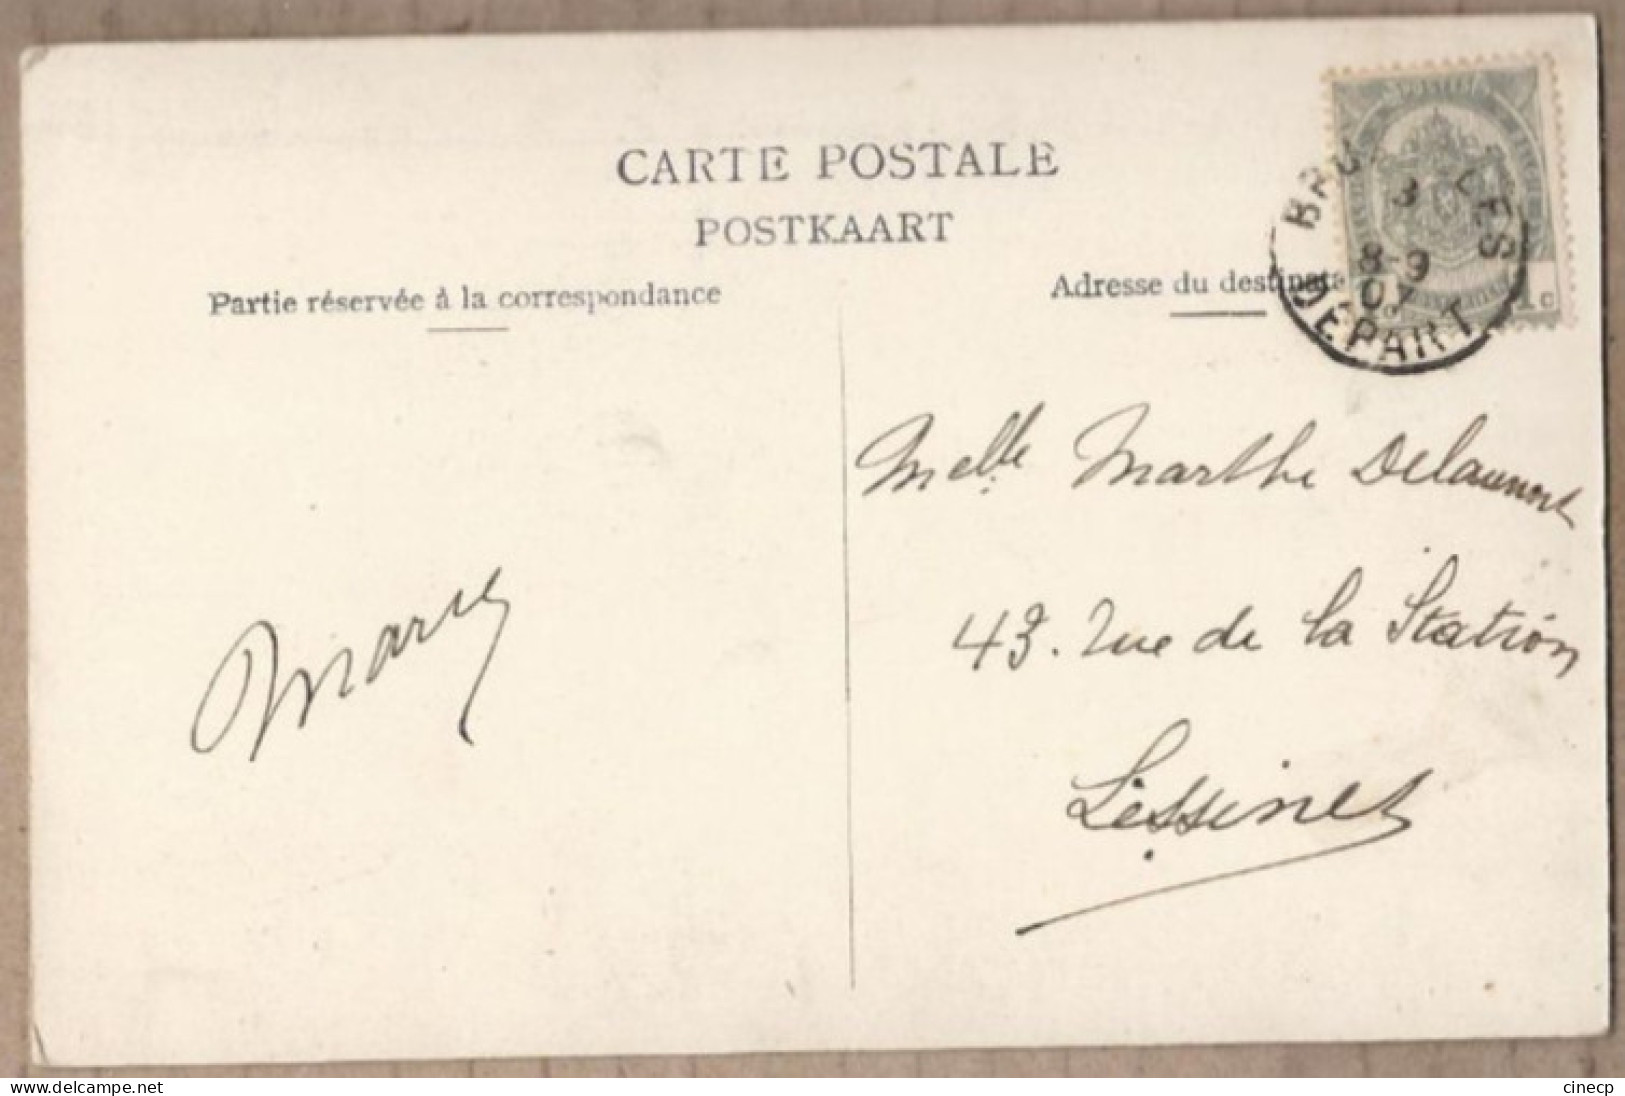 CARTE POSTALE
POSTKAART
Partie réservée à la correspondance
Adresse du destinata
POSTES
1c
3
8-9
07
DEPART
Melle Marthe Delaunois
43. rue de la Station
Lessines
Marie
www.delcampe.net
cinecp